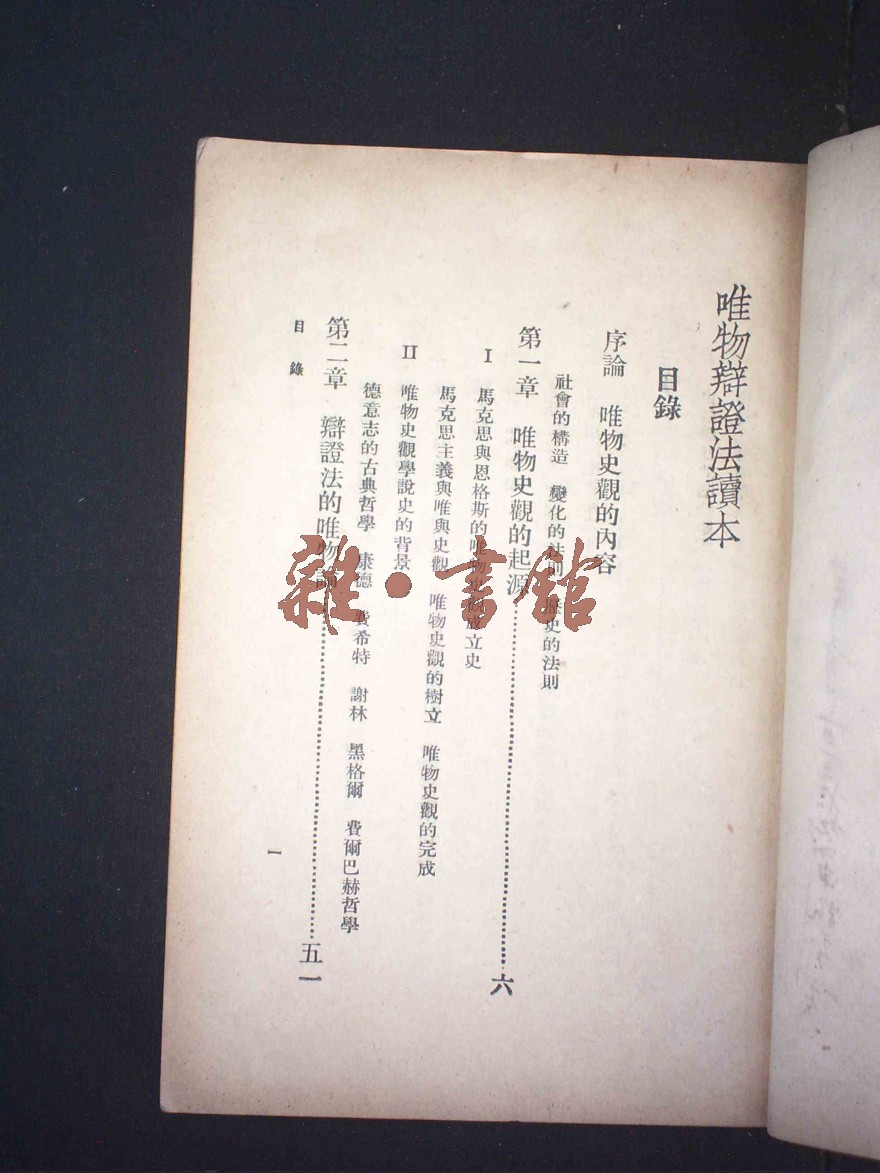 唯物辯證法讀本
目錄
序論 唯物史觀的內容
社會的構造 變化的法則 歷史的法則
第一章 唯物史觀的起源……六
I 馬克思與恩格斯的唯物史觀成立史
馬克思主義與唯與史觀 唯物史觀的樹立 唯物史觀的完成
II 唯物史觀學說史的背景
德意志的古典哲學 康德 費希特 謝林 黑格爾 費爾巴赫哲學
第二章 辯證法的唯物論……五一
目錄
一
雜·書館